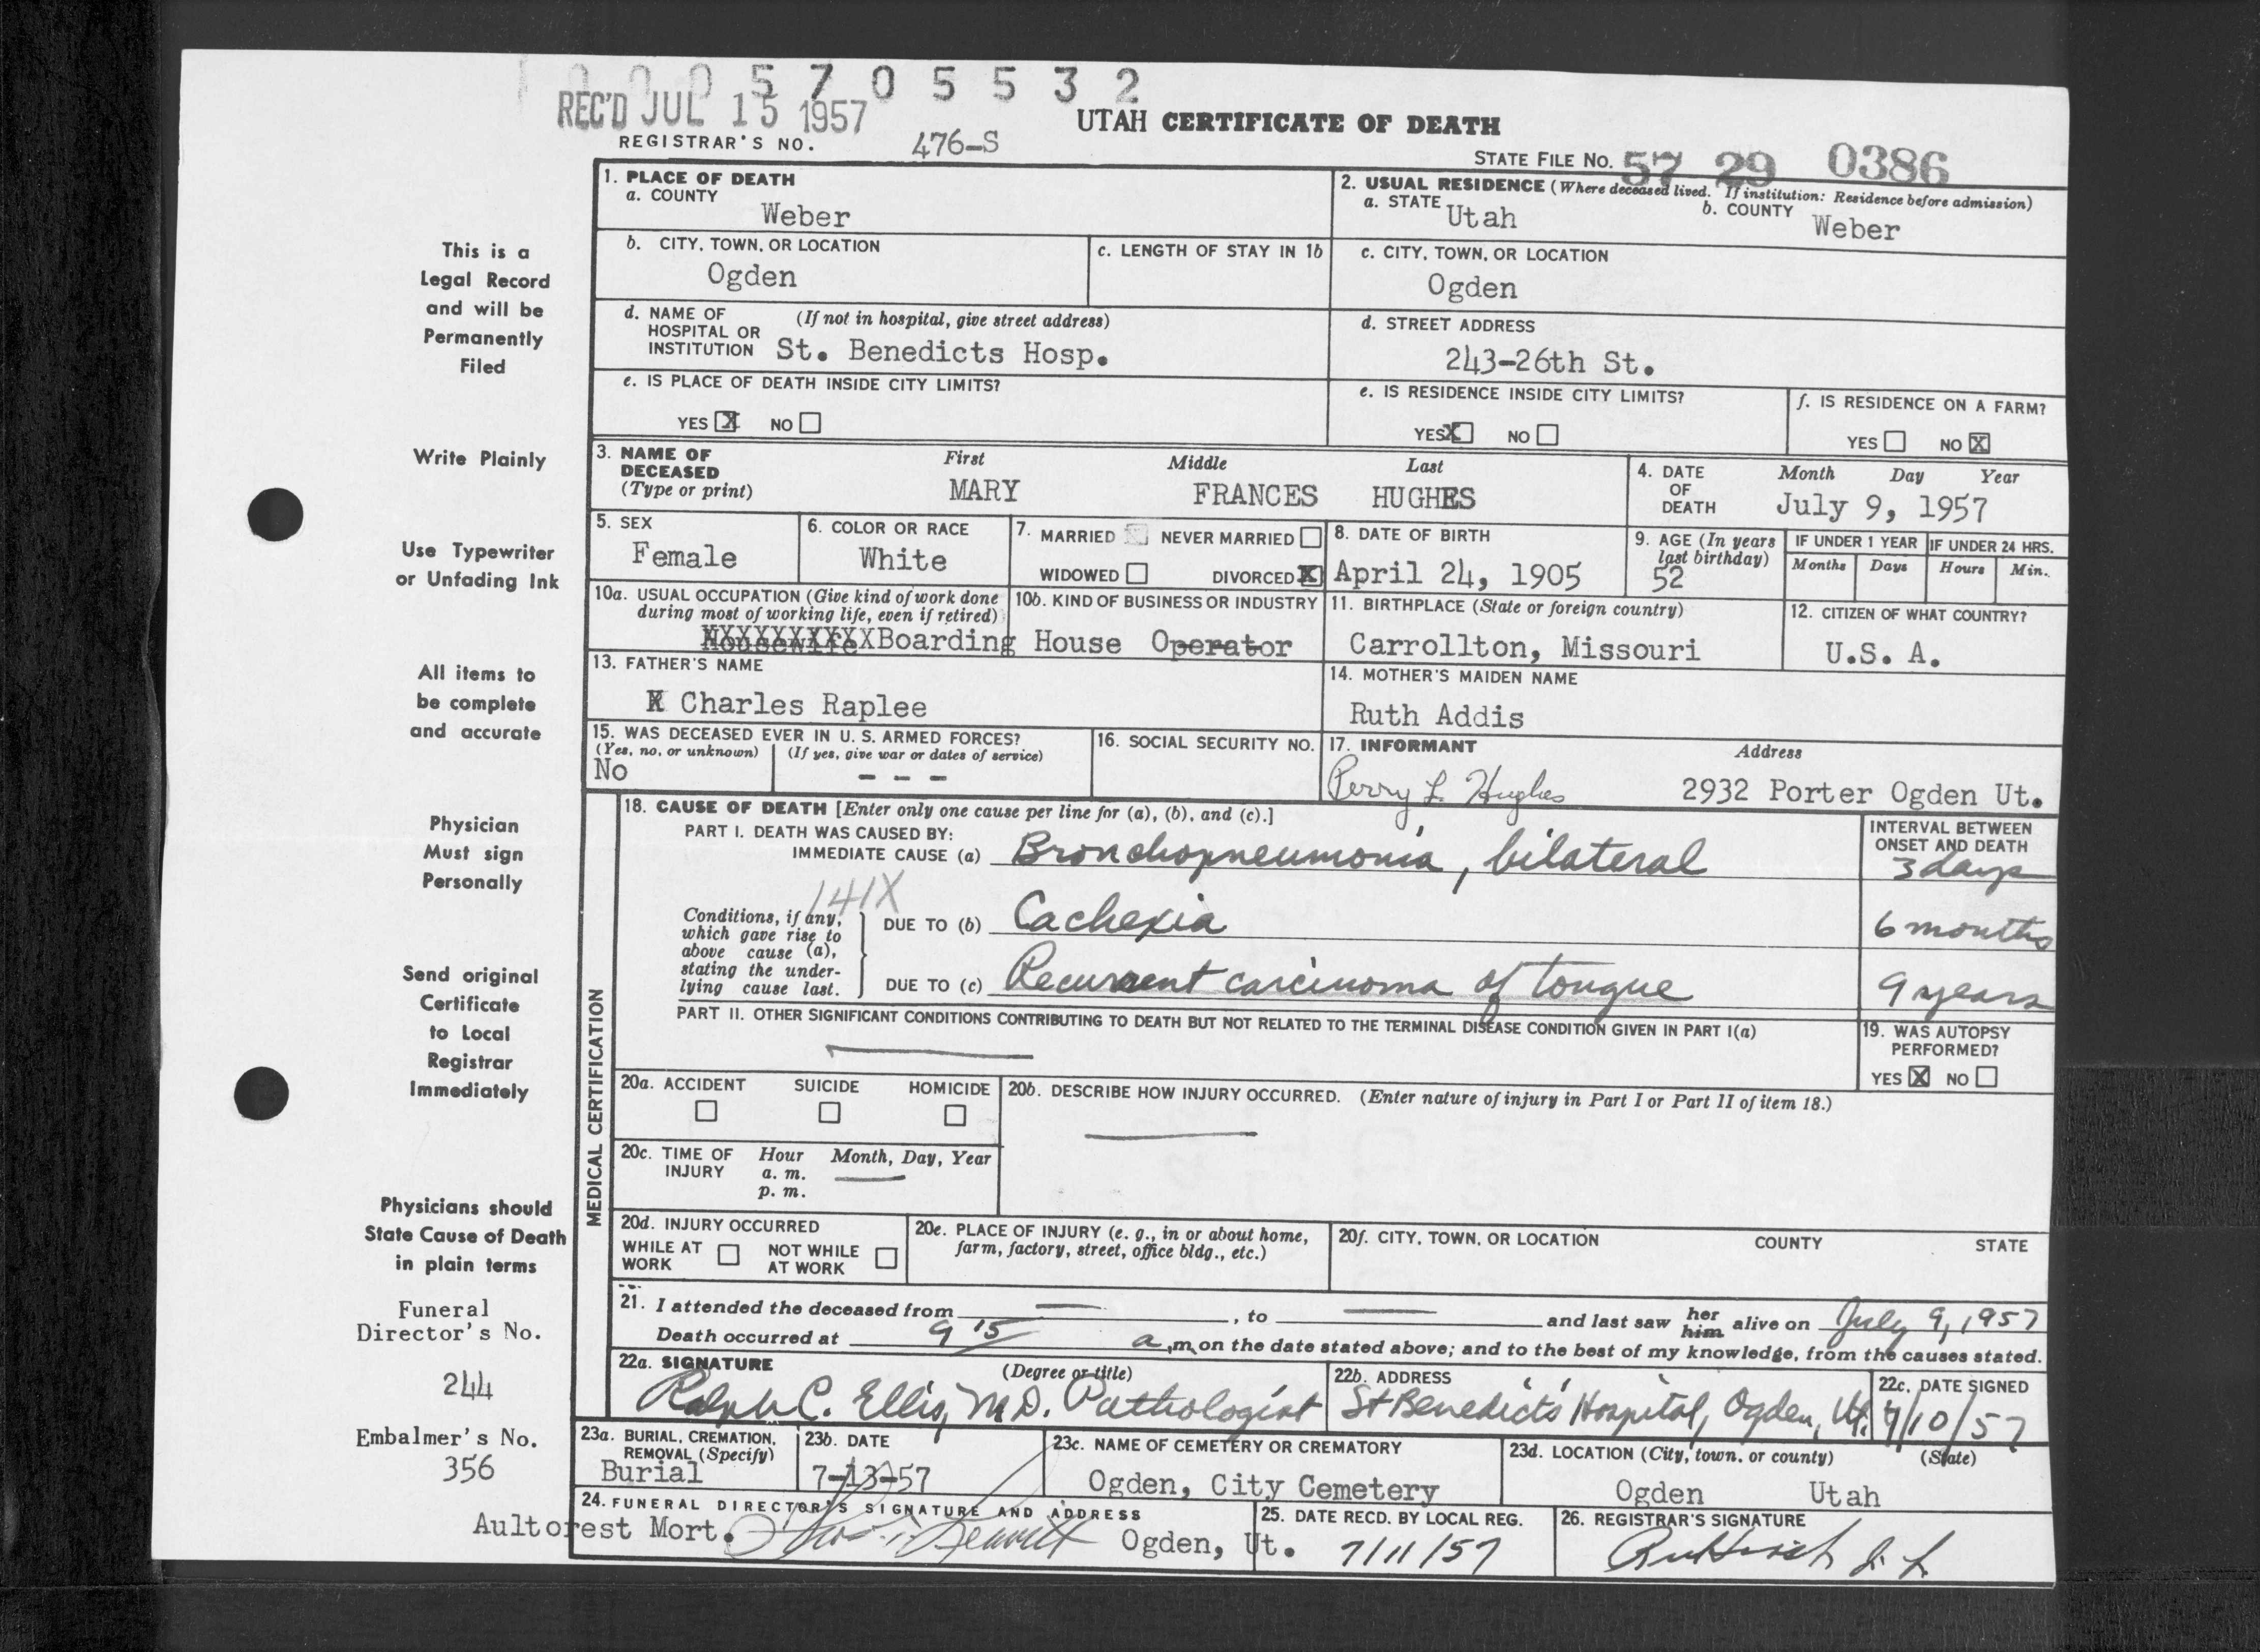 0005705532
REC'D JUL 15 1957
UTAH CERTIFICATE OF DEATH
REGISTRAR'S NO. 476-S
STATE FILE NO. 57 29 0386
1. PLACE OF DEATH
a. COUNTY
Weber
2. USUAL RESIDENCE (Where deceased lived. If institution: Residence before admission)
a. STATE Utah b. COUNTY Weber
b. CITY, TOWN, OR LOCATION
Ogden
c. LENGTH OF STAY IN 1b
c. CITY, TOWN, OR LOCATION
Ogden
d. NAME OF HOSPITAL OR INSTITUTION (If not in hospital, give street address)
St. Benedicts Hosp.
d. STREET ADDRESS
243-26th St.
e. IS PLACE OF DEATH INSIDE CITY LIMITS?
YES X NO
e. IS RESIDENCE INSIDE CITY LIMITS?
YES X NO
f. IS RESIDENCE ON A FARM?
YES NO X
3. NAME OF DECEASED (Type or print)
First Middle Last
MARY FRANCES HUGHES
4. DATE OF DEATH
Month Day Year
July 9, 1957
5. SEX
Female
6. COLOR OR RACE
White
7. MARRIED NEVER MARRIED
WIDOWED DIVORCED X
8. DATE OF BIRTH
April 24, 1905
9. AGE (In years last birthday)
52
IF UNDER 1 YEAR
Months Days
IF UNDER 24 HRS.
Hours Min.
10a. USUAL OCCUPATION (Give kind of work done during most of working life, even if retired)
10b. KIND OF BUSINESS OR INDUSTRY
Housewife Boarding House Operator
11. BIRTHPLACE (State or foreign country)
Carrollton, Missouri
12. CITIZEN OF WHAT COUNTRY?
U.S. A.
13. FATHER'S NAME
Charles Raplee
14. MOTHER'S MAIDEN NAME
Ruth Addis
15. WAS DECEASED EVER IN U. S. ARMED FORCES?
(Yes, no, or unknown) (If yes, give war or dates of service)
No - - -
16. SOCIAL SECURITY NO.
17. INFORMANT Address
Perry L. Hughes 2932 Porter Ogden Ut.
MEDICAL CERTIFICATION
18. CAUSE OF DEATH [Enter only one cause per line for (a), (b), and (c).]
PART I. DEATH WAS CAUSED BY:
IMMEDIATE CAUSE (a) Bronchopneumonia, bilateral
INTERVAL BETWEEN ONSET AND DEATH
3 days
141X
Conditions, if any, which gave rise to above cause (a), stating the underlying cause last.
DUE TO (b) Cachexia
6 months
DUE TO (c) Recurrent carcinoma of tongue
9 years
PART II. OTHER SIGNIFICANT CONDITIONS CONTRIBUTING TO DEATH BUT NOT RELATED TO THE TERMINAL DISEASE CONDITION GIVEN IN PART I(a)
19. WAS AUTOPSY PERFORMED?
YES X NO
20a. ACCIDENT SUICIDE HOMICIDE
20b. DESCRIBE HOW INJURY OCCURRED. (Enter nature of injury in Part I or Part II of item 18.)
20c. TIME OF INJURY Hour Month, Day, Year
a. m.
p. m.
20d. INJURY OCCURRED
WHILE AT WORK NOT WHILE AT WORK
20e. PLACE OF INJURY (e. g., in or about home, farm, factory, street, office bldg., etc.)
20f. CITY, TOWN, OR LOCATION COUNTY STATE
21. I attended the deceased from — , to — and last saw her him alive on July 9, 1957
Death occurred at 9 15 a .m, on the date stated above; and to the best of my knowledge, from the causes stated.
22a. SIGNATURE (Degree or title)
Ralph C. Ellis, M.D. Pathologist
22b. ADDRESS
St Benedict's Hospital, Ogden, Ut.
22c. DATE SIGNED
7/10/57
23a. BURIAL, CREMATION, REMOVAL (Specify)
Burial
23b. DATE
7-13-57
23c. NAME OF CEMETERY OR CREMATORY
Ogden, City Cemetery
23d. LOCATION (City, town, or county) (State)
Ogden Utah
24. FUNERAL DIRECTOR'S SIGNATURE AND ADDRESS
Aultorest Mort. Ogden, Ut.
25. DATE RECD. BY LOCAL REG.
7/11/57
26. REGISTRAR'S SIGNATURE
This is a
Legal Record
and will be
Permanently
Filed
Write Plainly
Use Typewriter
or Unfading Ink
All items to
be complete
and accurate
Physician
Must sign
Personally
Send original
Certificate
to Local
Registrar
Immediately
Physicians should
State Cause of Death
in plain terms
Funeral
Director's No.
244
Embalmer's No.
356